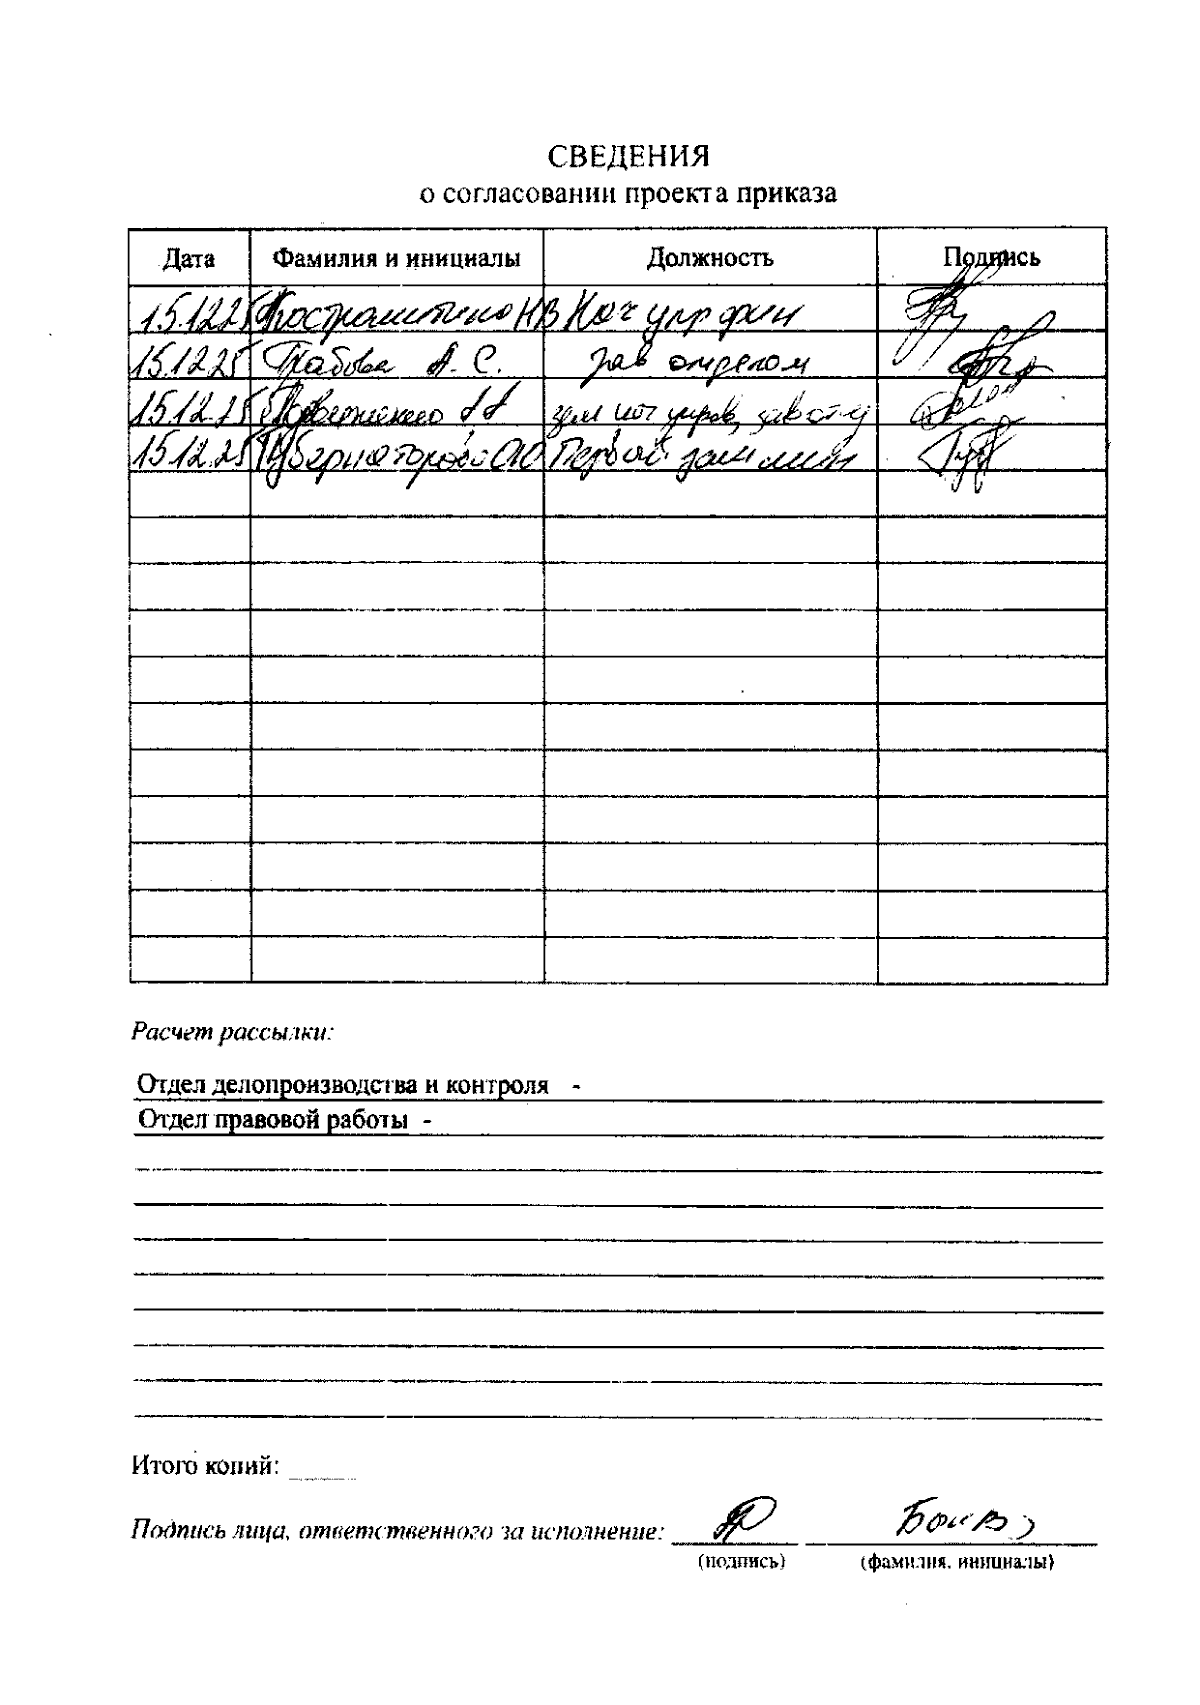 СВЕДЕНИЯ
о согласовании проекта приказа
Дата Фамилия и инициалы Должность Подпись
15.12.25 НВ Нач упр фин
15.12.25 А. С. зав отделом
15.12.25
15.12.25 Губернаторова ОЮ Первый зам мин
Расчет рассылки:
Отдел делопроизводства и контроля -
Отдел правовой работы -
Итого копий:
Подпись лица, ответственного за исполнение:
(подпись) (фамилия, инициалы)